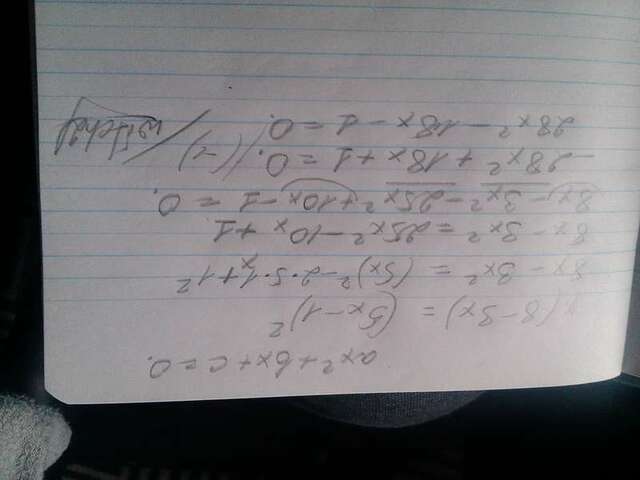 ax² + bx + c = 0.
x(8-3x) = (5x-1)²
8x - 3x² = (5x)² - 2·5x·1 + 1²
8x - 3x² = 25x² - 10x + 1
8x - 3x² - 25x² + 10x - 1 = 0.
-28x² + 18x + 1 = 0. /(-)/
28x² - 18x - 1 = 0.